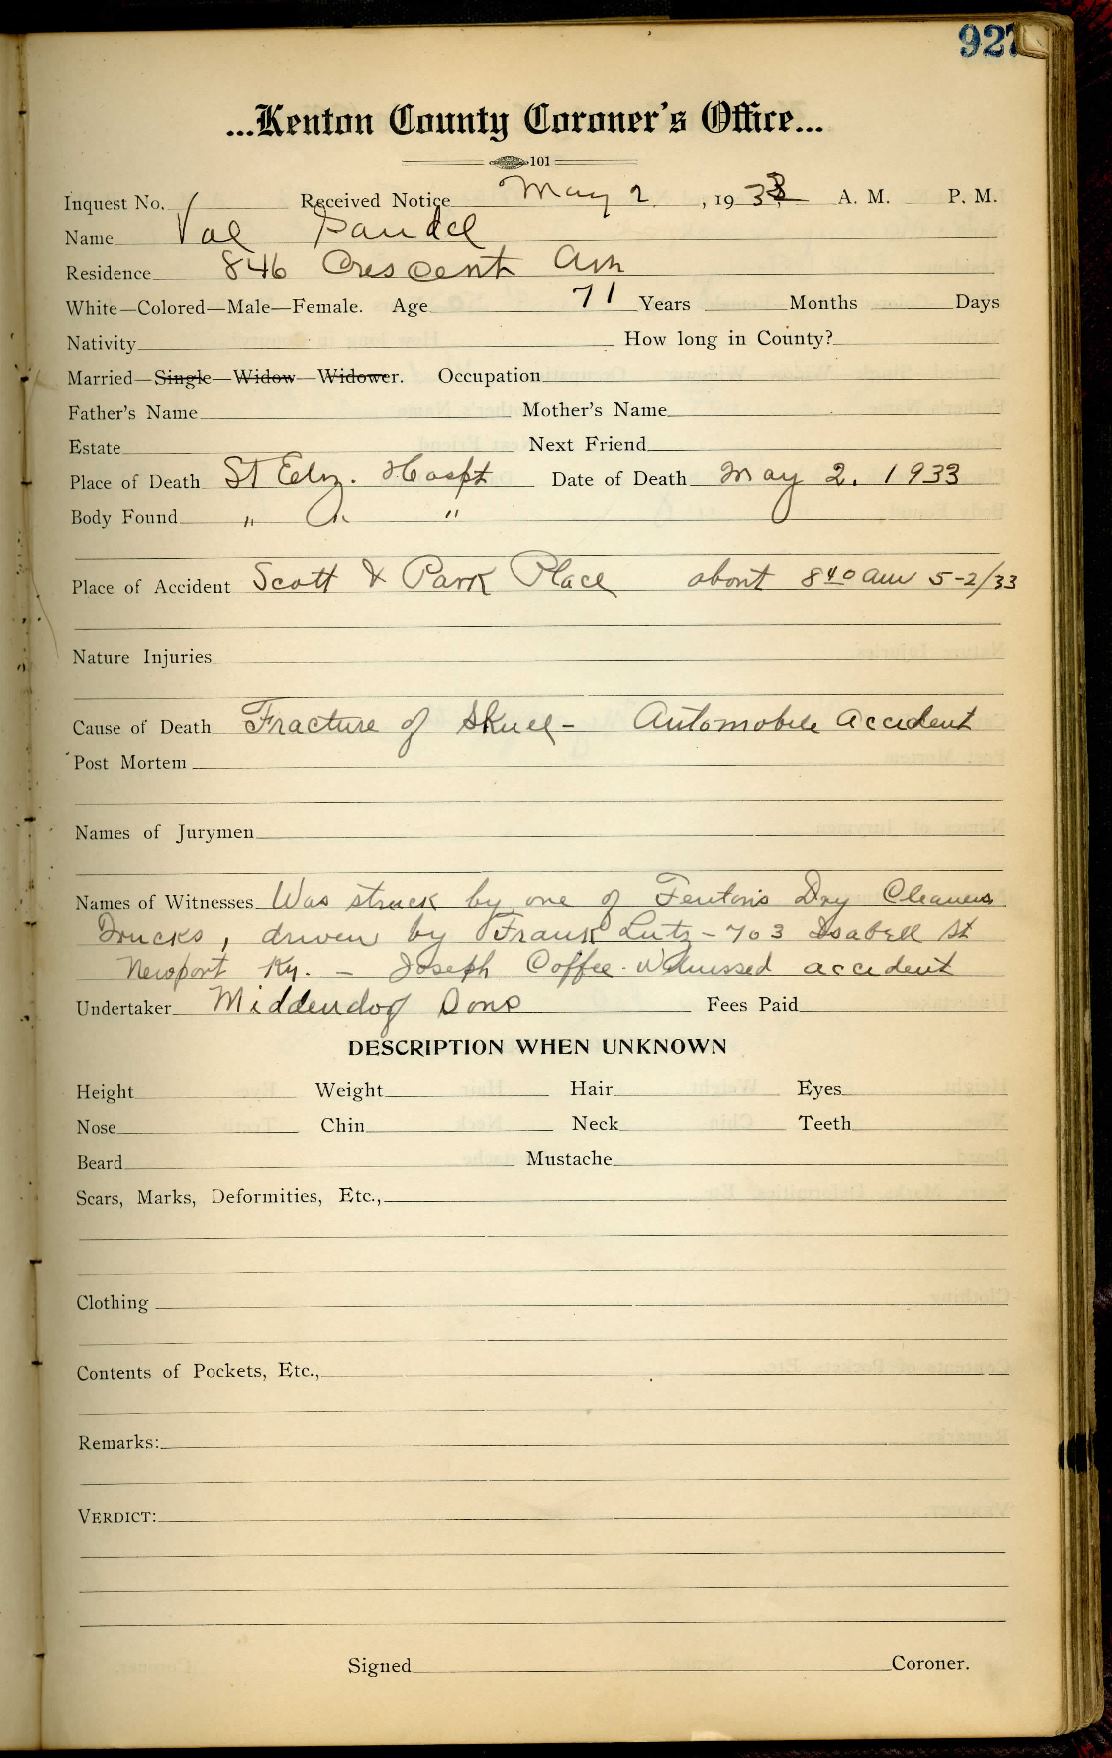 927
...Kenton County Coroner's Office...
101
Inquest No. Received Notice May 2, 1933 A. M. P. M.
Name Val Sandel
Residence 846 Crescent Ave
White—Colored—Male—Female. Age 71 Years Months Days
Nativity How long in County?
Married—Single—Widow—Widower. Occupation
Father's Name Mother's Name
Estate Next Friend
Place of Death St Eliz. Hospt Date of Death May 2. 1933
Body Found " "
Place of Accident Scott & Park Place about 8 40 am 5-2/33
Nature Injuries
Cause of Death Fracture of Skull - Automobile accident
Post Mortem
Names of Jurymen
Names of Witnesses Was struck by one of Fenton's Dry Cleaners
Trucks, driven by Frank Lutz - 703 Isabell St
Newport Ky. - Joseph Coffee. Witnessed accident
Undertaker Middendorf Sons Fees Paid
DESCRIPTION WHEN UNKNOWN
Height Weight Hair Eyes
Nose Chin Neck Teeth
Beard Mustache
Scars, Marks, Deformities, Etc.,
Clothing
Contents of Pockets, Etc.,
Remarks:
VERDICT:
Signed Coroner.